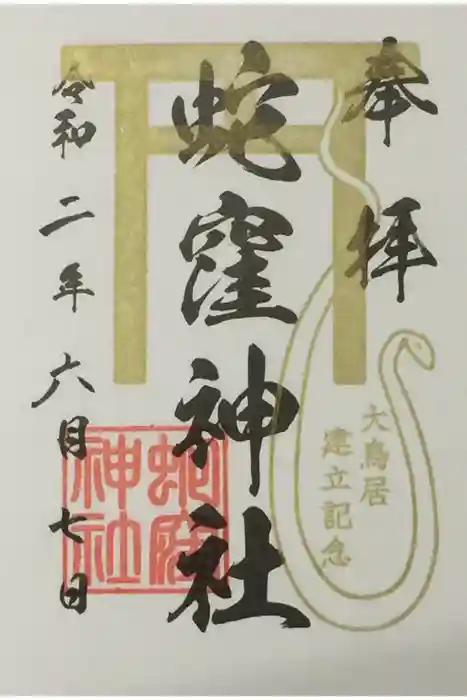 奉拝
大鳥居
建立記念
蛇窪神社
蛇窪
神社
令和二年六月七日